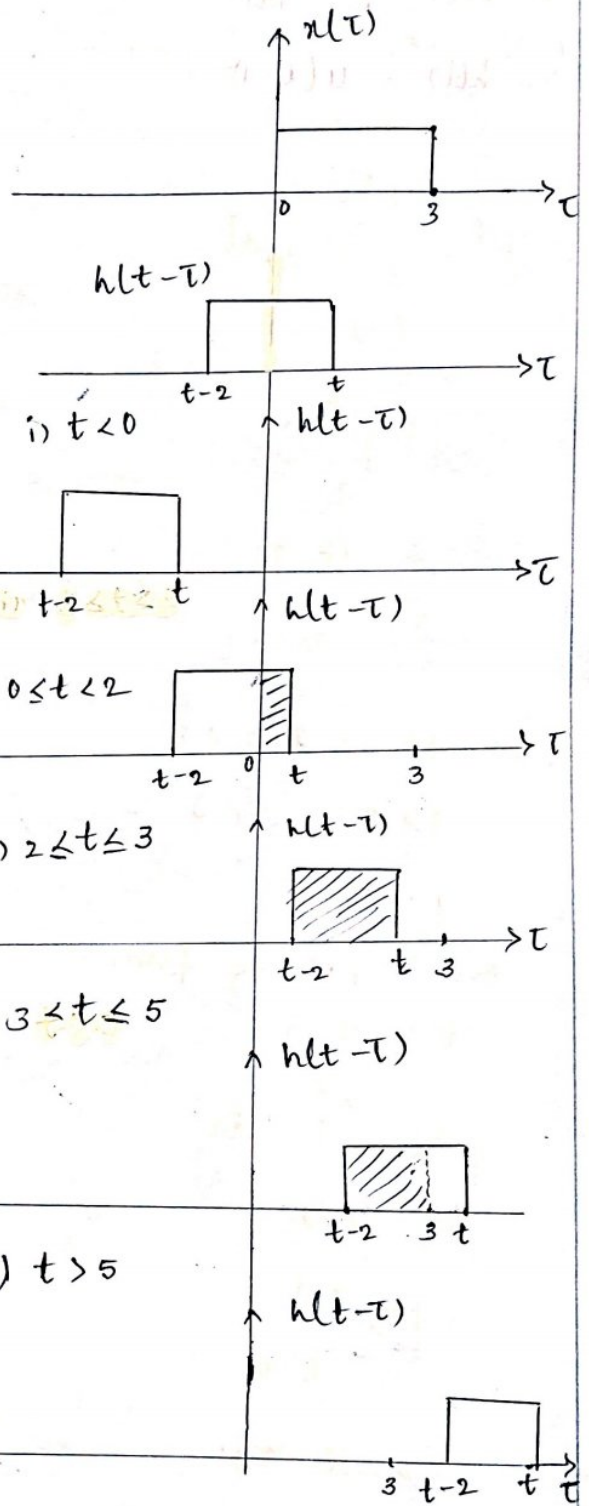 x(τ)
0 3 τ
h(t-τ)
t-2 t τ
i) t<0 h(t-τ)
t-2 t τ
h(t-τ)
0≤t<2
t-2 0 t 3 τ
h(t-τ)
) 2≤t≤3
t-2 t 3 τ
3<t≤5
h(t-τ)
t-2 3 t
) t>5
h(t-τ)
3 t-2 t τ